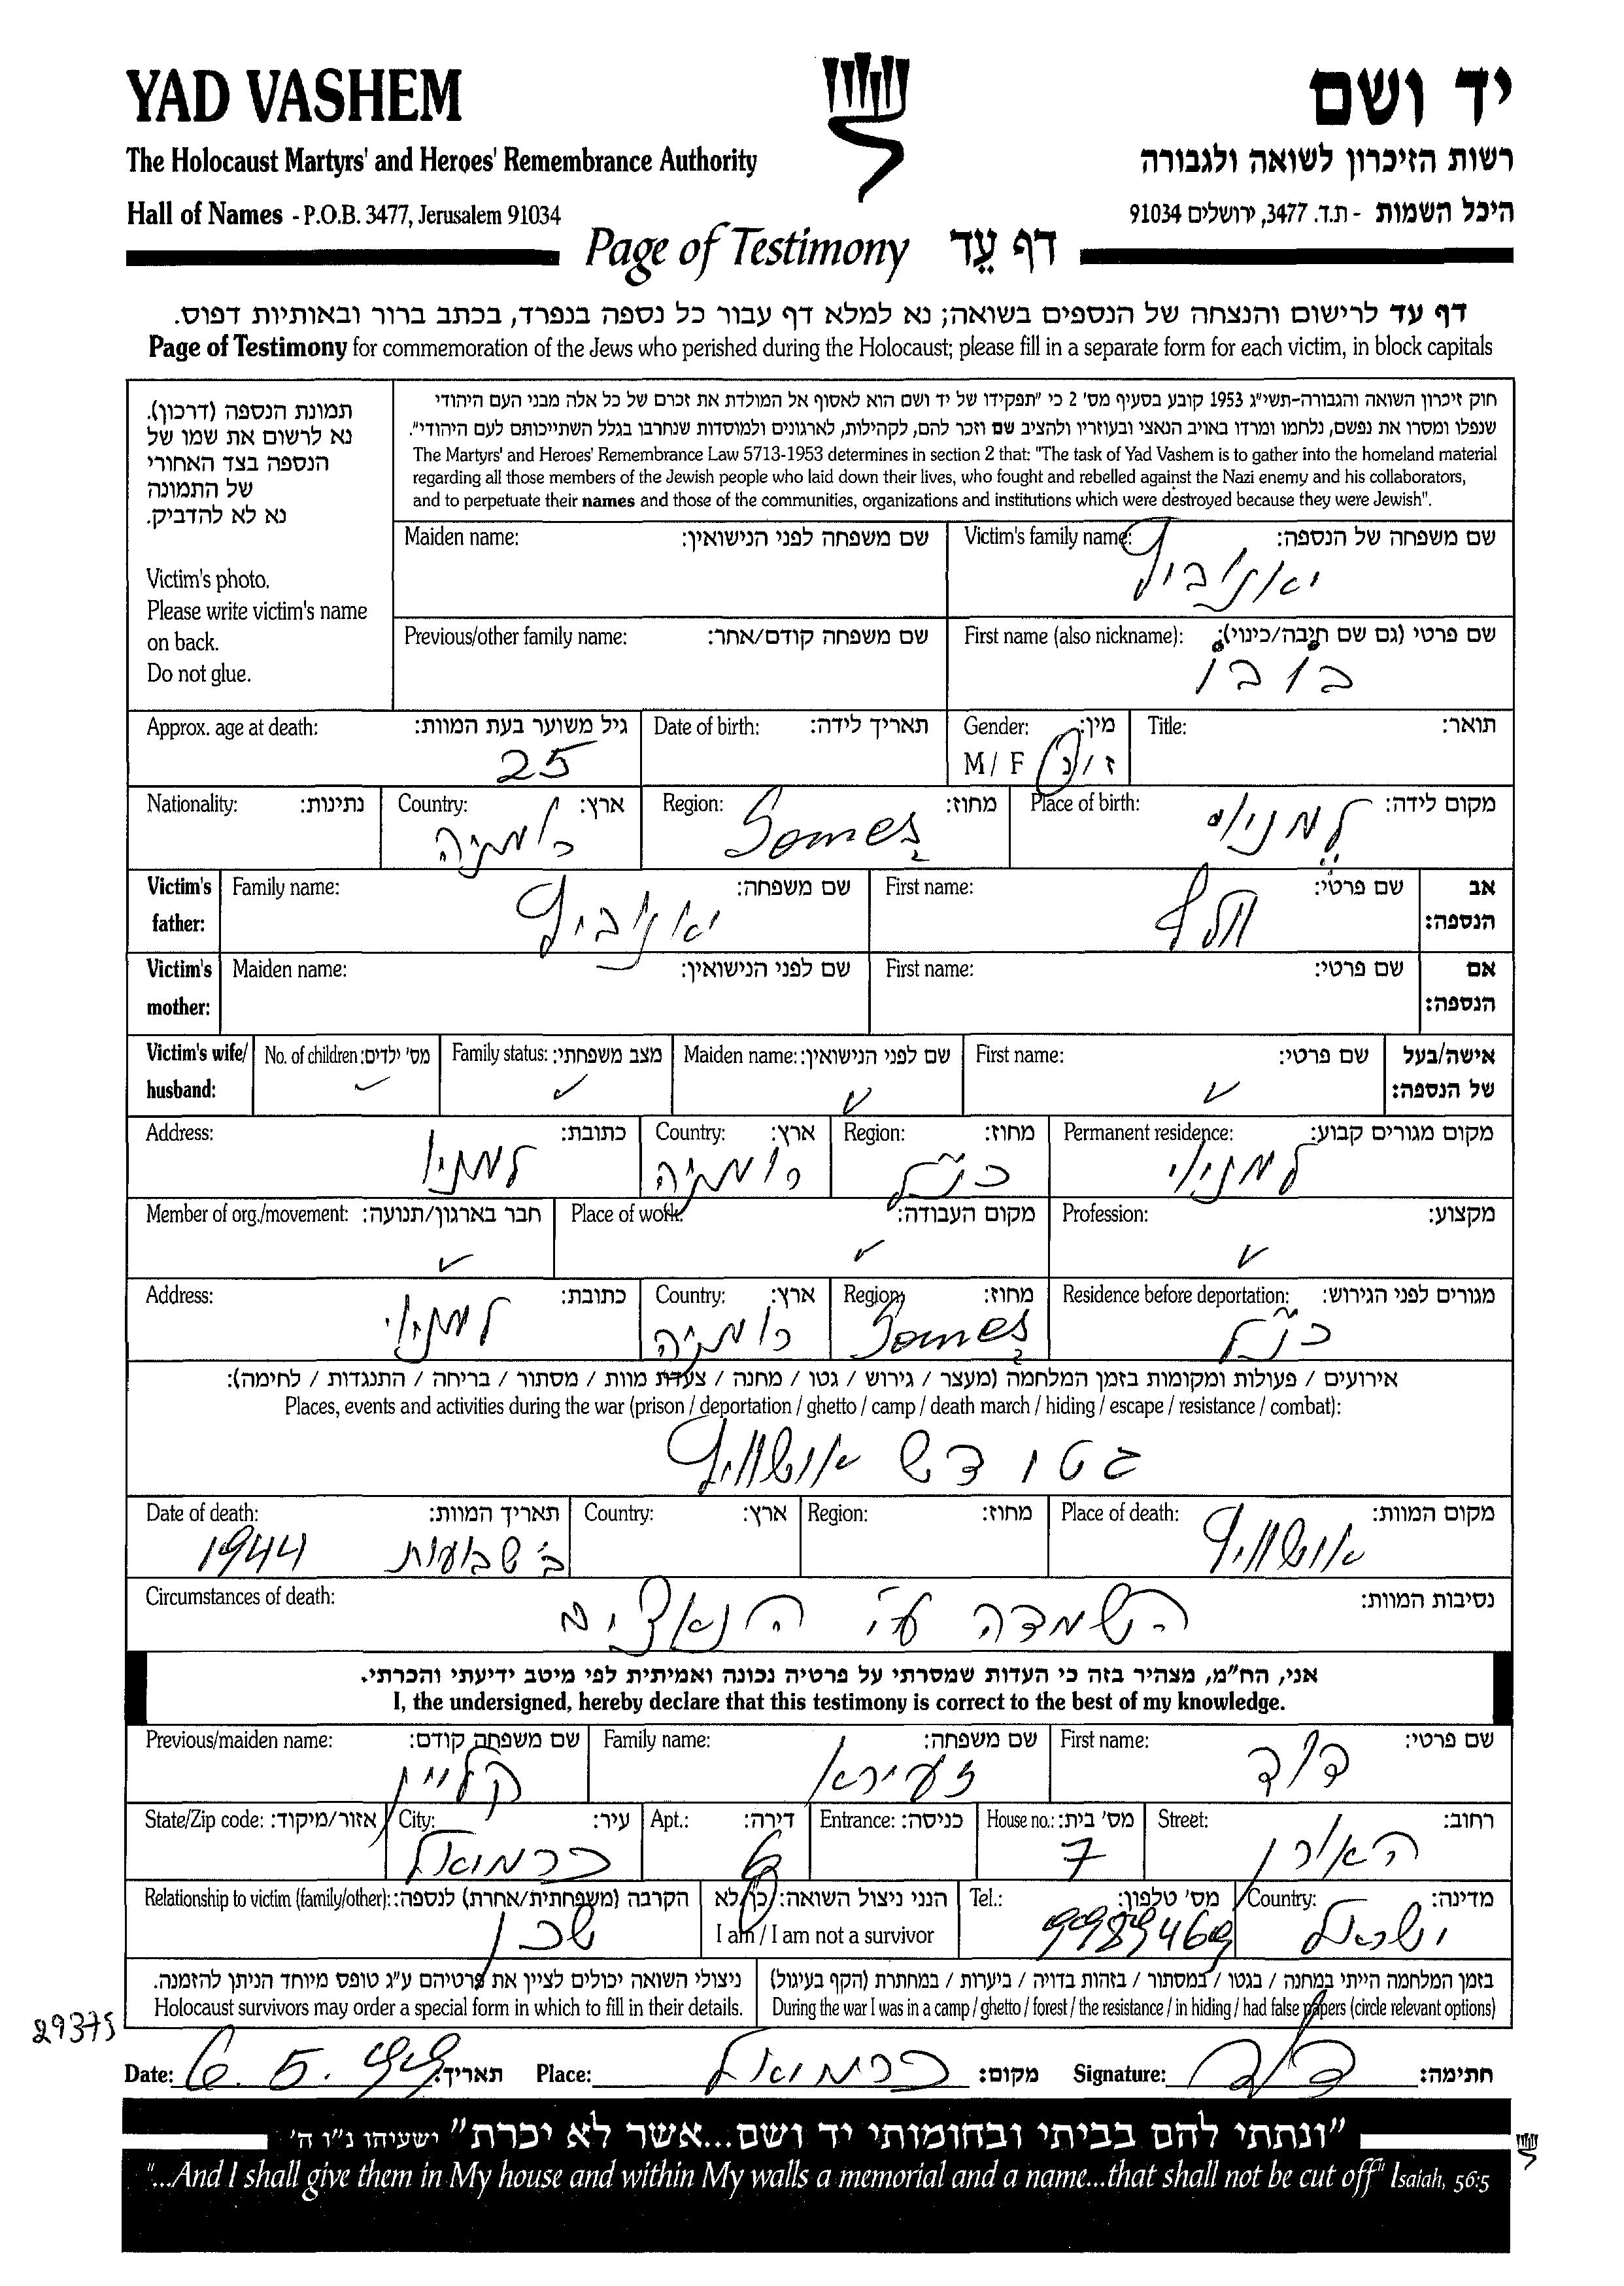 YAD VASHEM
יד ושם
The Holocaust Martyrs' and Heroes' Remembrance Authority
רשות הזיכרון לשואה ולגבורה
Hall of Names - P.O.B. 3477, Jerusalem 91034
היכל השמות - ת.ד. 3477, ירושלים 91034
Page of Testimony דף עֵד
דף עד לרישום והנצחה של הנספים בשואה; נא למלא דף עבור כל נספה בנפרד, בכתב ברור ובאותיות דפוס.
Page of Testimony for commemoration of the Jews who perished during the Holocaust; please fill in a separate form for each victim, in block capitals
תמונת הנספה (דרכון).
נא לרשום את שמו של
הנספה בצד האחורי
של התמונה
נא לא להדביק.
Victim's photo.
Please write victim's name
on back.
Do not glue.
חוק זיכרון השואה והגבורה-תשי"ג 1953 קובע בסעיף מס' 2 כי "תפקידו של יד ושם הוא לאסוף אל המולדת את זכרם של כל אלה מבני העם היהודי
שנפלו ומסרו את נפשם, נלחמו ומרדו באויב הנאצי ובעוזריו ולהציב שם וזכר להם, לקהילות, לארגונים ולמוסדות שנחרבו בגלל השתייכותם לעם היהודי".
The Martyrs' and Heroes' Remembrance Law 5713-1953 determines in section 2 that: "The task of Yad Vashem is to gather into the homeland material
regarding all those members of the Jewish people who laid down their lives, who fought and rebelled against the Nazi enemy and his collaborators,
and to perpetuate their names and those of the communities, organizations and institutions which were destroyed because they were Jewish".
Victim's family name: שם משפחה של הנספה:
Maiden name: שם משפחה לפני הנישואין:
First name (also nickname): שם פרטי (גם שם חיבה/כינוי):
בובו
Previous/other family name: שם משפחה קודם/אחר:
Title: תואר:
Gender: מין:
M / F ז / נ
Date of birth: תאריך לידה:
Approx. age at death: גיל משוער בעת המוות:
25
Place of birth: מקום לידה:
Region: מחוז:
Someş
Country: ארץ:
רומניה
Nationality: נתינות:
Victim's father: אב הנספה:
First name: שם פרטי:
Family name: שם משפחה:
Victim's mother: אם הנספה:
First name: שם פרטי:
Maiden name: שם לפני הנישואין:
Victim's wife/ husband: אישה/בעל של הנספה:
First name: שם פרטי:
Maiden name: שם לפני הנישואין:
Family status: מצב משפחתי:
No. of children: מס' ילדים:
Permanent residence: מקום מגורים קבוע:
Region: מחוז:
כנ"ל
Country: ארץ:
רומניה
Address: כתובת:
Profession: מקצוע:
Place of work: מקום העבודה:
Member of org./movement: חבר בארגון/תנועה:
Residence before deportation: מגורים לפני הגירוש:
כנ"ל
Region: מחוז:
Someş
Country: ארץ:
רומניה
Address: כתובת:
אירועים / פעולות ומקומות בזמן המלחמה (מעצר / גירוש / גטו / מחנה / צעדת מוות / מסתור / בריחה / התנגדות / לחימה):
Places, events and activities during the war (prison / deportation / ghetto / camp / death march / hiding / escape / resistance / combat):
גטו דש אושוויץ
Place of death: מקום המוות:
אושוויץ
Region: מחוז:
Country: ארץ:
Date of death: תאריך המוות:
ב' שבועות 1944
Circumstances of death: נסיבות המוות:
השמדה ע"י הנאצים
אני, הח"מ, מצהיר בזה כי העדות שמסרתי על פרטיה נכונה ואמיתית לפי מיטב ידיעתי והכרתי.
I, the undersigned, hereby declare that this testimony is correct to the best of my knowledge.
First name: שם פרטי:
דוד
Family name: שם משפחה:
זעירא
Previous/maiden name: שם משפחה קודם:
קליין
Street: רחוב:
האורן
House no.: מס' בית:
7
Entrance: כניסה:
Apt.: דירה:
6
City: עיר:
כרמיאל
State/Zip code: אזור/מיקוד:
Country: מדינה:
ישראל
Tel.: מס' טלפון:
9989469
הנני ניצול השואה: כן/לא
I am / I am not a survivor
Relationship to victim (family/other): הקרבה (משפחתית/אחרת) לנספה:
שכן
בזמן המלחמה הייתי במחנה / בגטו / במסתור / בזהות בדויה / ביערות / במחתרת (הקף בעיגול)
During the war I was in a camp / ghetto / forest / the resistance / in hiding / had false papers (circle relevant options)
ניצולי השואה יכולים לציין את פרטיהם ע"ג טופס מיוחד הניתן להזמנה.
Holocaust survivors may order a special form in which to fill in their details.
29375
Date: 6.5.99 תאריך:
Place: כרמיאל מקום:
Signature: דוד חתימה:
"ונתתי להם בביתי ובחומותי יד ושם...אשר לא יכרת" ישעיהו נ"ו ה'
"...And I shall give them in My house and within My walls a memorial and a name...that shall not be cut off" Isaiah, 56:5